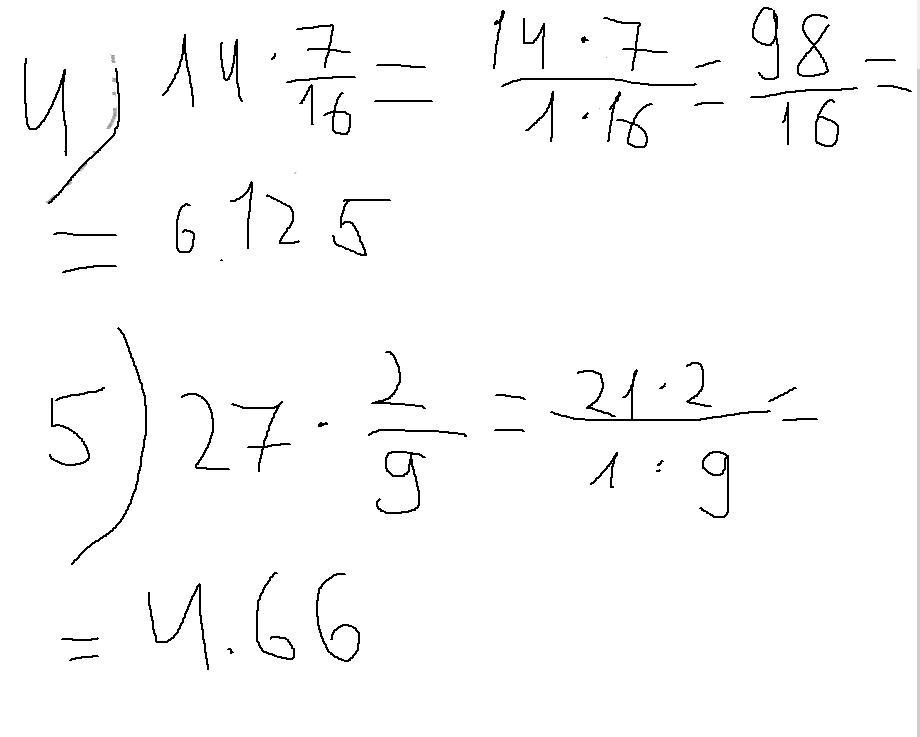 4) 14 · 7/16 = 14 · 7 / 1 · 16 = 98/16 =
= 6.125
5) 27 · 2/9 = 21 · 2 / 1 · 9 =
= 4.66